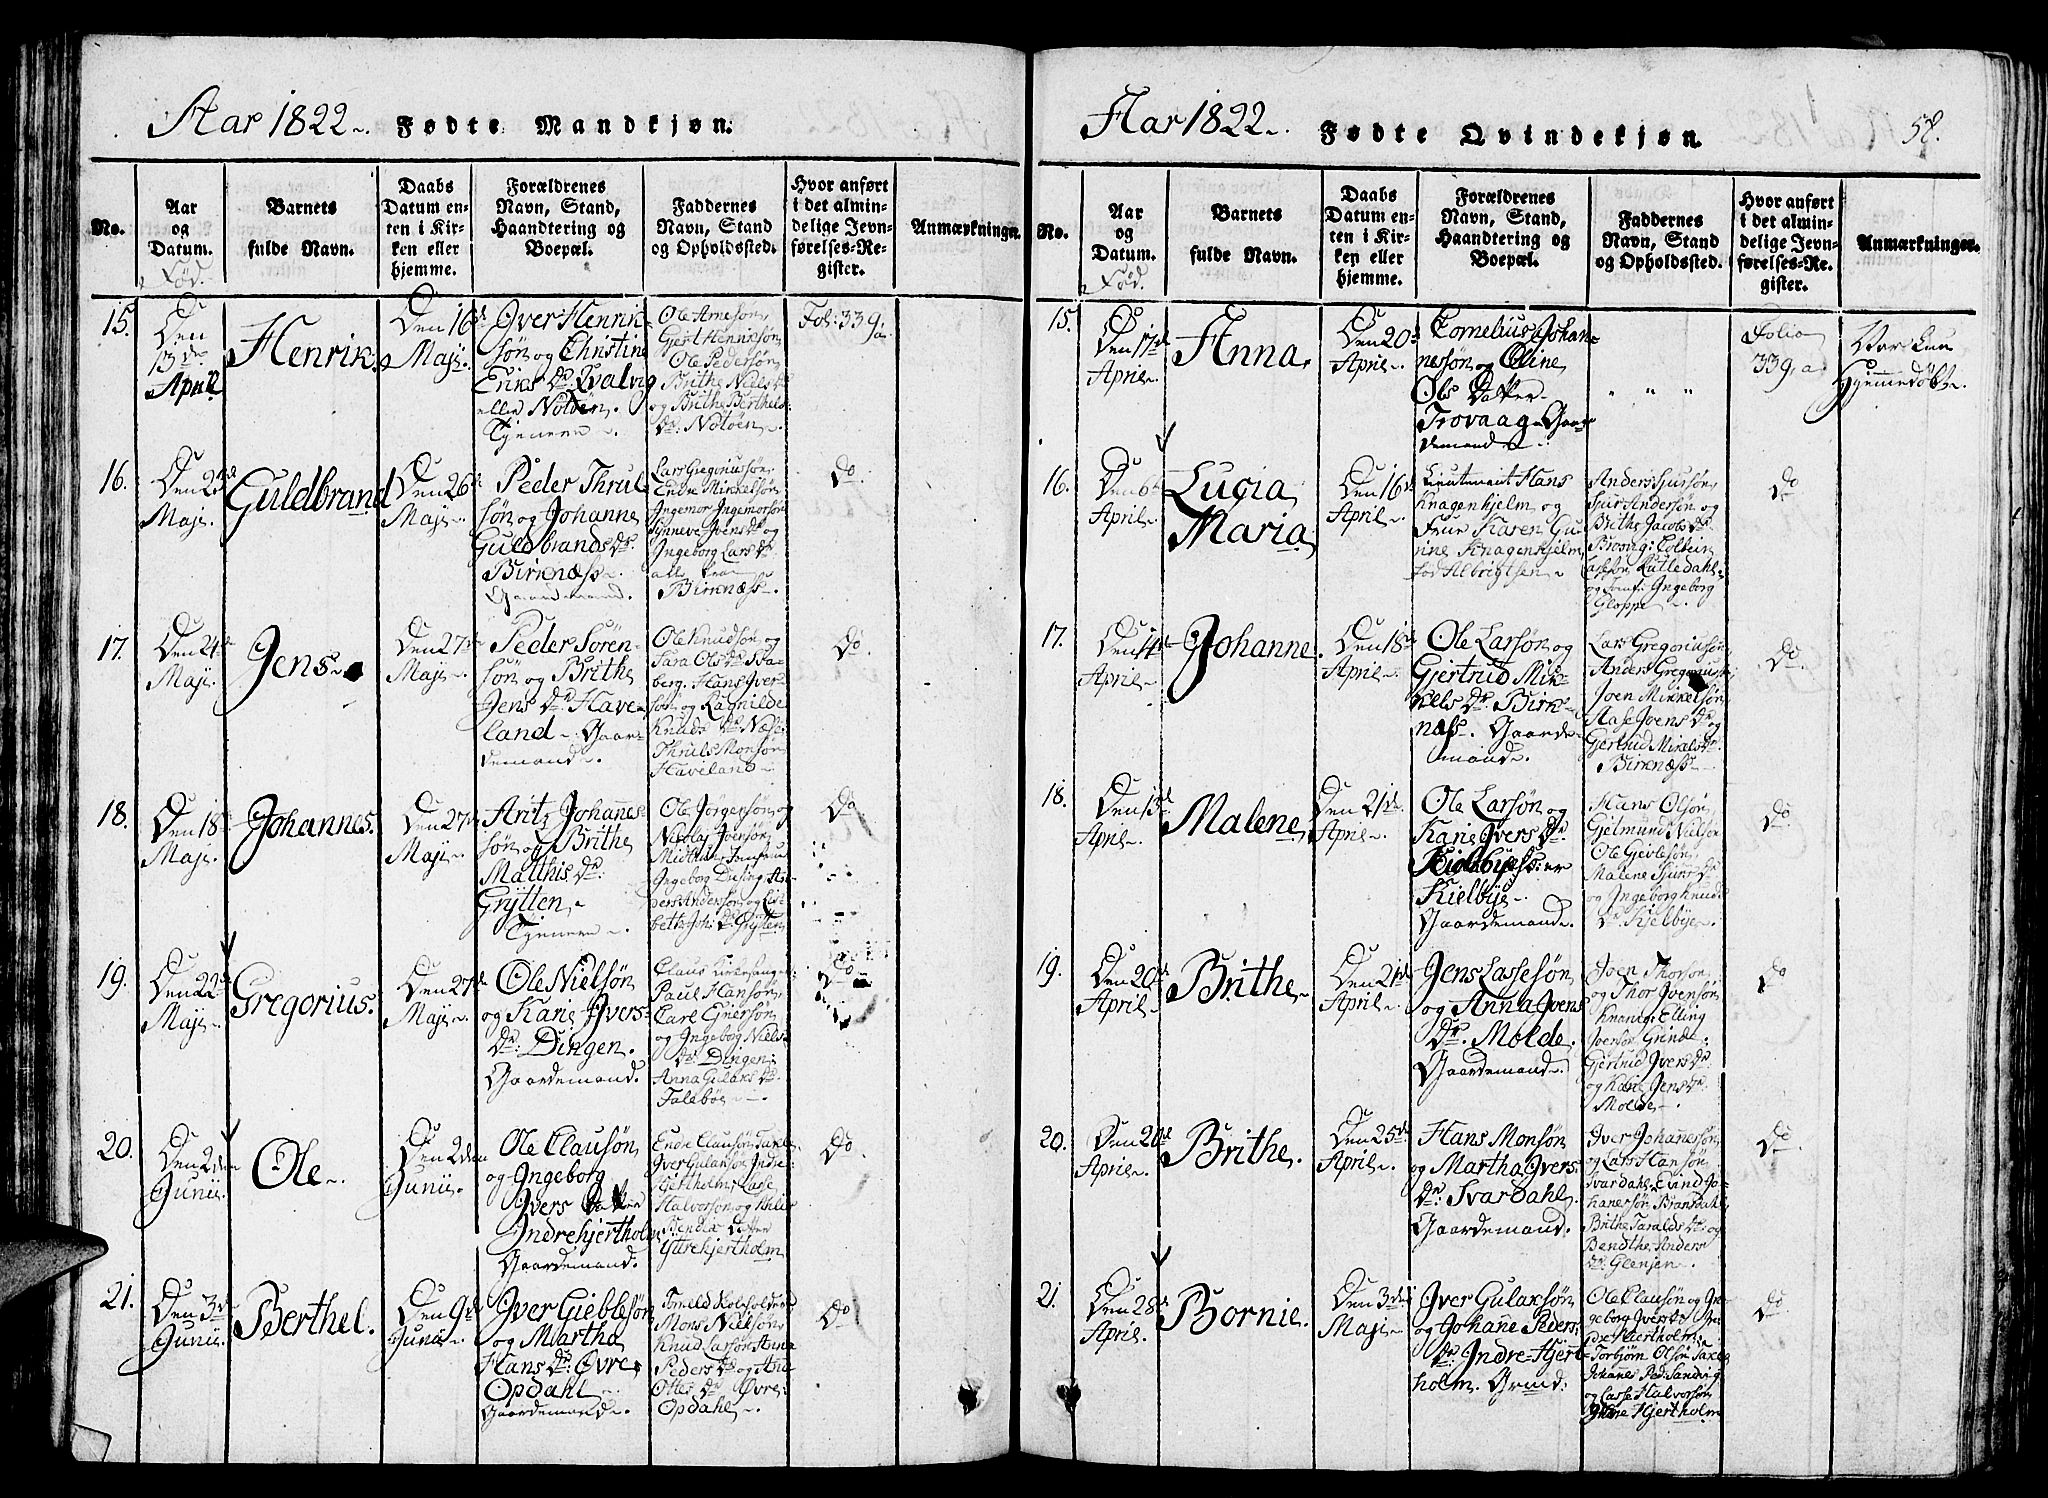 Aar 1822. Fødte Mandkjøn.
No.
Aar
og
Datum.
Fød.
Barnets
fulde Navn.
Daabs
Datum en-
ten i Kir-
ken eller
hjemme.
Forældrenes
Navn, Stand,
Haandtering og
Boepæl.
Faddernes
Navn, Stand
og Opholdssted.
Hvor anført
i det almin-
delige Jevn-
førelses-Re-
gister.
Anmærkninger.
15.
Den
13de
April
Henrik.
Den 16de
Maji.
Iver Henrik-
søn og Christine
Eriks Dr. Qvalvig
eller Nolden.
Tjenere.
Ole Arnesøn,
Gjert Henriksøn,
Ole Pedersøn,
Brithe Niels Dr.
og Brithe Berthels
Dr: Noloen.
Fol: 339,
a.
16.
Den 25de
Maji.
Guldbrand
Den 26de
Maji.
Peder Thrul-
søn og Johanne
Guldbrands Dr.
Birknæss.
Gaardemand.
Lars Gregoriussøn,
Endre Mikkelsøn,
Ingemor Ingemorsøn
Synneve Ivens Dr. og
Ingeborg Lars Dr.
alle fra
Birknæss.
Do.
17.
Den 24de
Maji.
Jens.
Den 27de
Maji.
Peder Søren-
søn og Brithe
Jens Dr. Have-
land. Gaar-
demand.
Ole Knudsøn og
Sara Ols Dr. Sva-
berg. Hans Iver-
søn og Ragnilde
Knuds Dr. Næse:
Thruls Monsøn
Haveland.
Do.
18.
Den 18de
Maji.
Johannes.
Den 27de
Maji.
Arit Johannes-
søn og Brithe
Matthis Dr:
Grytten,
Tjenere.
Ole Jørgensøn og
Nicolay Iversøn,
Jomfrue
Ingeborg Dusing As-
pers Andersøn og Lis-
beth Joh: Dr. Grytten.
Do
19.
Den 22de
Maji.
Gregorius.
Den 27de
Maji.
Ole Nielsøn,
og Kari Ivers-
Dr: Dingen.
Gaardemand.
Claus Kirkesanger
Paul Hansøn,
Carl Gnersøn
og Ingeborg Niels-
Dr: Dingen:
Anna Gulaks Dr.
Taleboe.
Do
20.
Den 2den
Junii.
Ole.
Den 2den
Junii.
Ole Clausøn,
og Ingeborg
Ivers Datter
Indrehjertholm,
Gaardemand.
Endre Clausøn Takle
Iver Gulaksøn Indre-
hjertholm, Lasse
Halvorsøn og
Bendix Datter
Yttrehjertholm
Do.
21.
Den 3de
Junii.
Berthel.
Den 9de
Junii.
Iver Gieblesøn
og Martha
Hans Dr: Øvre,
Opdahl.
Gaardemand.
Mons Nielsøn,
Knud Larsøn Anna
Peders Dr. og Ane
Ottes Dr. Øvre:
Opdahl.
Do
Aar 1822. Fødte Qvindekjøn.
58.
No.
Aar
og
Datum.
Fød.
Barnets
fulde Navn.
Daabs
Datum en-
ten i Kir-
ken eller
hjemme.
Forældrenes
Navn, Stand,
Haandtering og
Boepæl.
Faddernes
Navn, Stand
og Opholdssted.
Hvor anført
i det almin-
delige Jevn-
førelses-Re-
gister.
Anmærkninger.
15.
Den 17de
April.
Anna,
Den 20de
April.
Cornelius Johan-
nessøn og Oline
Ols Datter
Trovaag. Gaar-
demand.
" " "
Folio
339, a.
Var kun
Hjemmedøbt.
16.
Den 6te
April.
Lucia
Maria,
Den 16de
April.
Lieutenant Hans
Knagenhjelm og
Frue Karen Gu-
rine Knagenhjelm
fød Albrigtsen.
Anders Sjursøn,
Sjur Andersøn og
Brithe Jacobs Dr.
Brosvig: Colbein
Lassesøn Rutledahl,
og Jomf: Ingeborg
Gloppe.
Do
17.
Den 14de
April.
Johanne.
Den 18de
April.
Ole Larsøn og
Gjertrud Mik-
kels Dr. Birk-
næss. Gaarde-
mand.
Lars Gregoriussøn
Anders Gregoriussøn
Joen Mikkelsøn
Aase Joens Dr. og
Gjertrud Mikels Dr.
Birknæss.
Do.
18.
Den 13de
April.
Malene,
Den 21de
April.
Ole Larsøn og
Kari Ivers Dr.
Kielbye.
Gaardemand.
Hans Olsøn,
Gjelmund Nielsøn
Ole Gjeblesøn,
Malene Sjurs Dr.
og Ingeborg Knuds
Dr. Kjelbye.
Do.
19.
Den 20de
April.
Brithe,
Den 21de
April.
Jens Lassesøn,
og Anna Ivens
Dr. Molde.
Gaardemand.
Joen Thorsøn,
og Thor Ivensøn
Elling
Iversøn Grinde,
Gjertrud Ivers Dr.
og Kari Jens Dr.
Molde.
Do
20.
Den 20de
April.
Brithe.
Den 25de
April.
Hans Monsøn,
og Martha Ivers
Dr. Svardahl.
Gaardemand.
Iver Johannesøn,
og Lars Hansøn,
Svardahl, Evind Jo-
hannesøn, Brandsdahl
Brithe Taralds Dr. og
Bendthe Anders
Dr. Glenjen.
Do
21.
Den 28de
April.
Bornie.
Den 3de
Maji.
Iver Gulaksøn,
og Johanne Peders:
Dr: Indre-Hjert-
holm. Gmd:
Ole Clausøn og In-
geborg Ivers Dr In-
dre Hjertholm:
Torbjørn Olsøn Takle,
Johanes Ped: Sandvig
og Lasse Halvorsøn
Hjertholm
Do